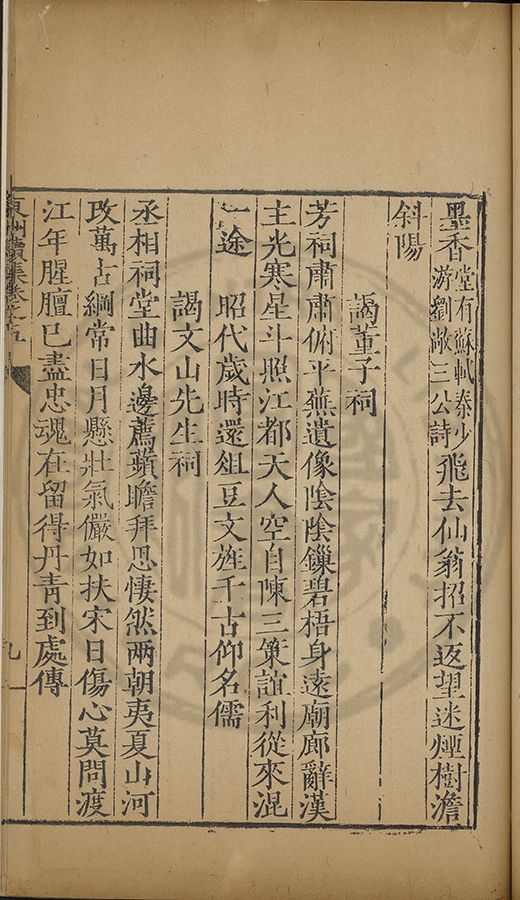 墨香堂有蘇軾秦少游劉敞三公詩飛去仙翁招不返望迷煙樹澹
斜陽
謁董子祠
芳祠肅肅俯平蕪遺像陰陰鏁碧梧身遠廟廊辭漢
主光寒星斗照江都天人空自陳三策誼利從來混
一途昭代歲時還俎豆文旌千古仰名儒
謁文山先生祠
丞相祠堂曲水邊薦蘋瞻拜思悽然兩朝夷夏山河
改萬古綱常日月懸壯氣儼如扶宋日傷心莫問渡
江年腥膻已盡忠魂在留得丹青到處傳
東洲續集卷之五
九